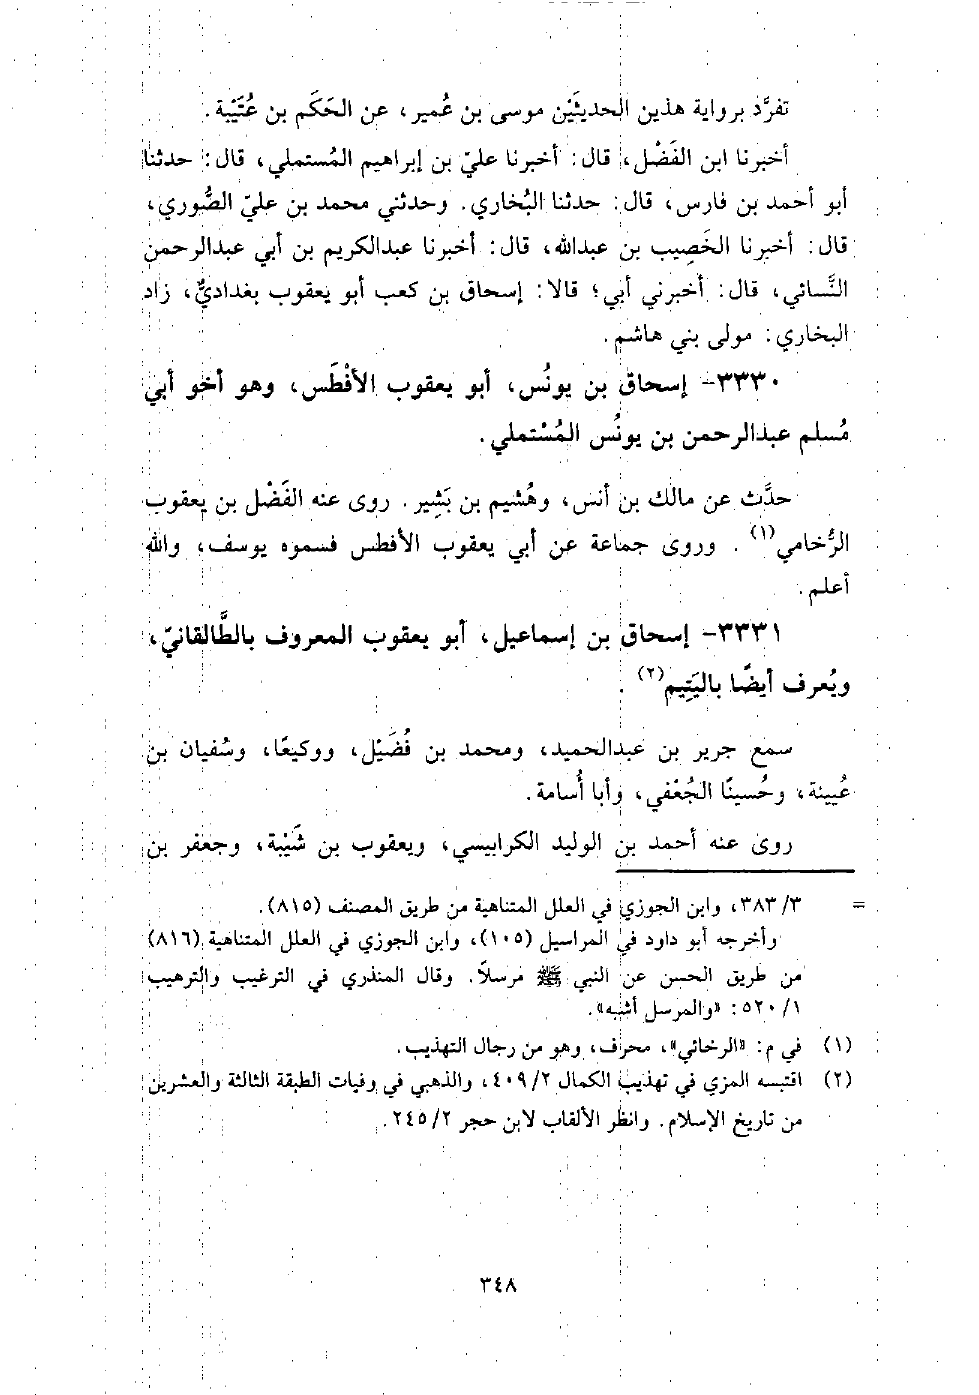 تفرَّد برواية هذين الحديثَيْن موسى بن عُمير، عن الحَكَم بن عُتَيْبة.
أخبرنا ابن الفَضْل، قال: أخبرنا عليّ بن إبراهيم المُستملي، قال: حدثنا
أبو أحمد بن فارس، قال: حدثنا البُخاري. وحدثني محمد بن عليّ الصُّوري،
قال: أخبرنا الخَصِيب بن عبدالله، قال: أخبرنا عبدالكريم بن أبي عبدالرحمن
النَّسائي، قال: أخبرني أبي؛ قالا: إسحاق بن كعب أبو يعقوب بغداديٌّ، زاد
البخاري: مولى بني هاشم.
٣٣٣٠- إسحاق بن يونُس، أبو يعقوب الأفْطَس، وهو أخو أبي
مُسلم عبدالرحمن بن يونُس المُسْتملي.
حدَّث عن مالك بن أنس، وهُشيم بن بَشِير. روى عنه الفَضْل بن يعقوب
الرُّخامي(١). وروى جماعة عن أبي يعقوب الأفطس فسموه يوسف، والله
أعلم.
٣٣٣١- إسحاق بن إسماعيل، أبو يعقوب المعروف بالطَّالقانيّ،
ويُعرف أيضًا باليَتِيم(٢).
سمع جرير بن عبدالحميد، ومحمد بن فُضَيْل، ووكيعًا، وسُفيان بن
عُيينة، وحُسينًا الجُعْفي، وأبا أُسامة.
روى عنه أحمد بن الوليد الكرابيسي، ويعقوب بن شَيْبة، وجعفر بن
= ٣/ ٣٨٣، وابن الجوزي في العلل المتناهية من طريق المصنف (٨١٥).
وأخرجه أبو داود في المراسيل (١٠٥)، وابن الجوزي في العلل المتناهية (٨١٦)
من طريق الحسن عن النبي ﷺ مرسلاً. وقال المنذري في الترغيب والترهيب
١/ ٥٢٠: «والمرسل أشبه».
(١) في م: «الرخائي»، محرف، وهو من رجال التهذيب.
(٢) اقتبسه المزي في تهذيب الكمال ٢/ ٤٠٩، والذهبي في وفيات الطبقة الثالثة والعشرين
من تاريخ الإسلام. وانظر الألقاب لابن حجر ٢/ ٢٤٥.
٣٤٨